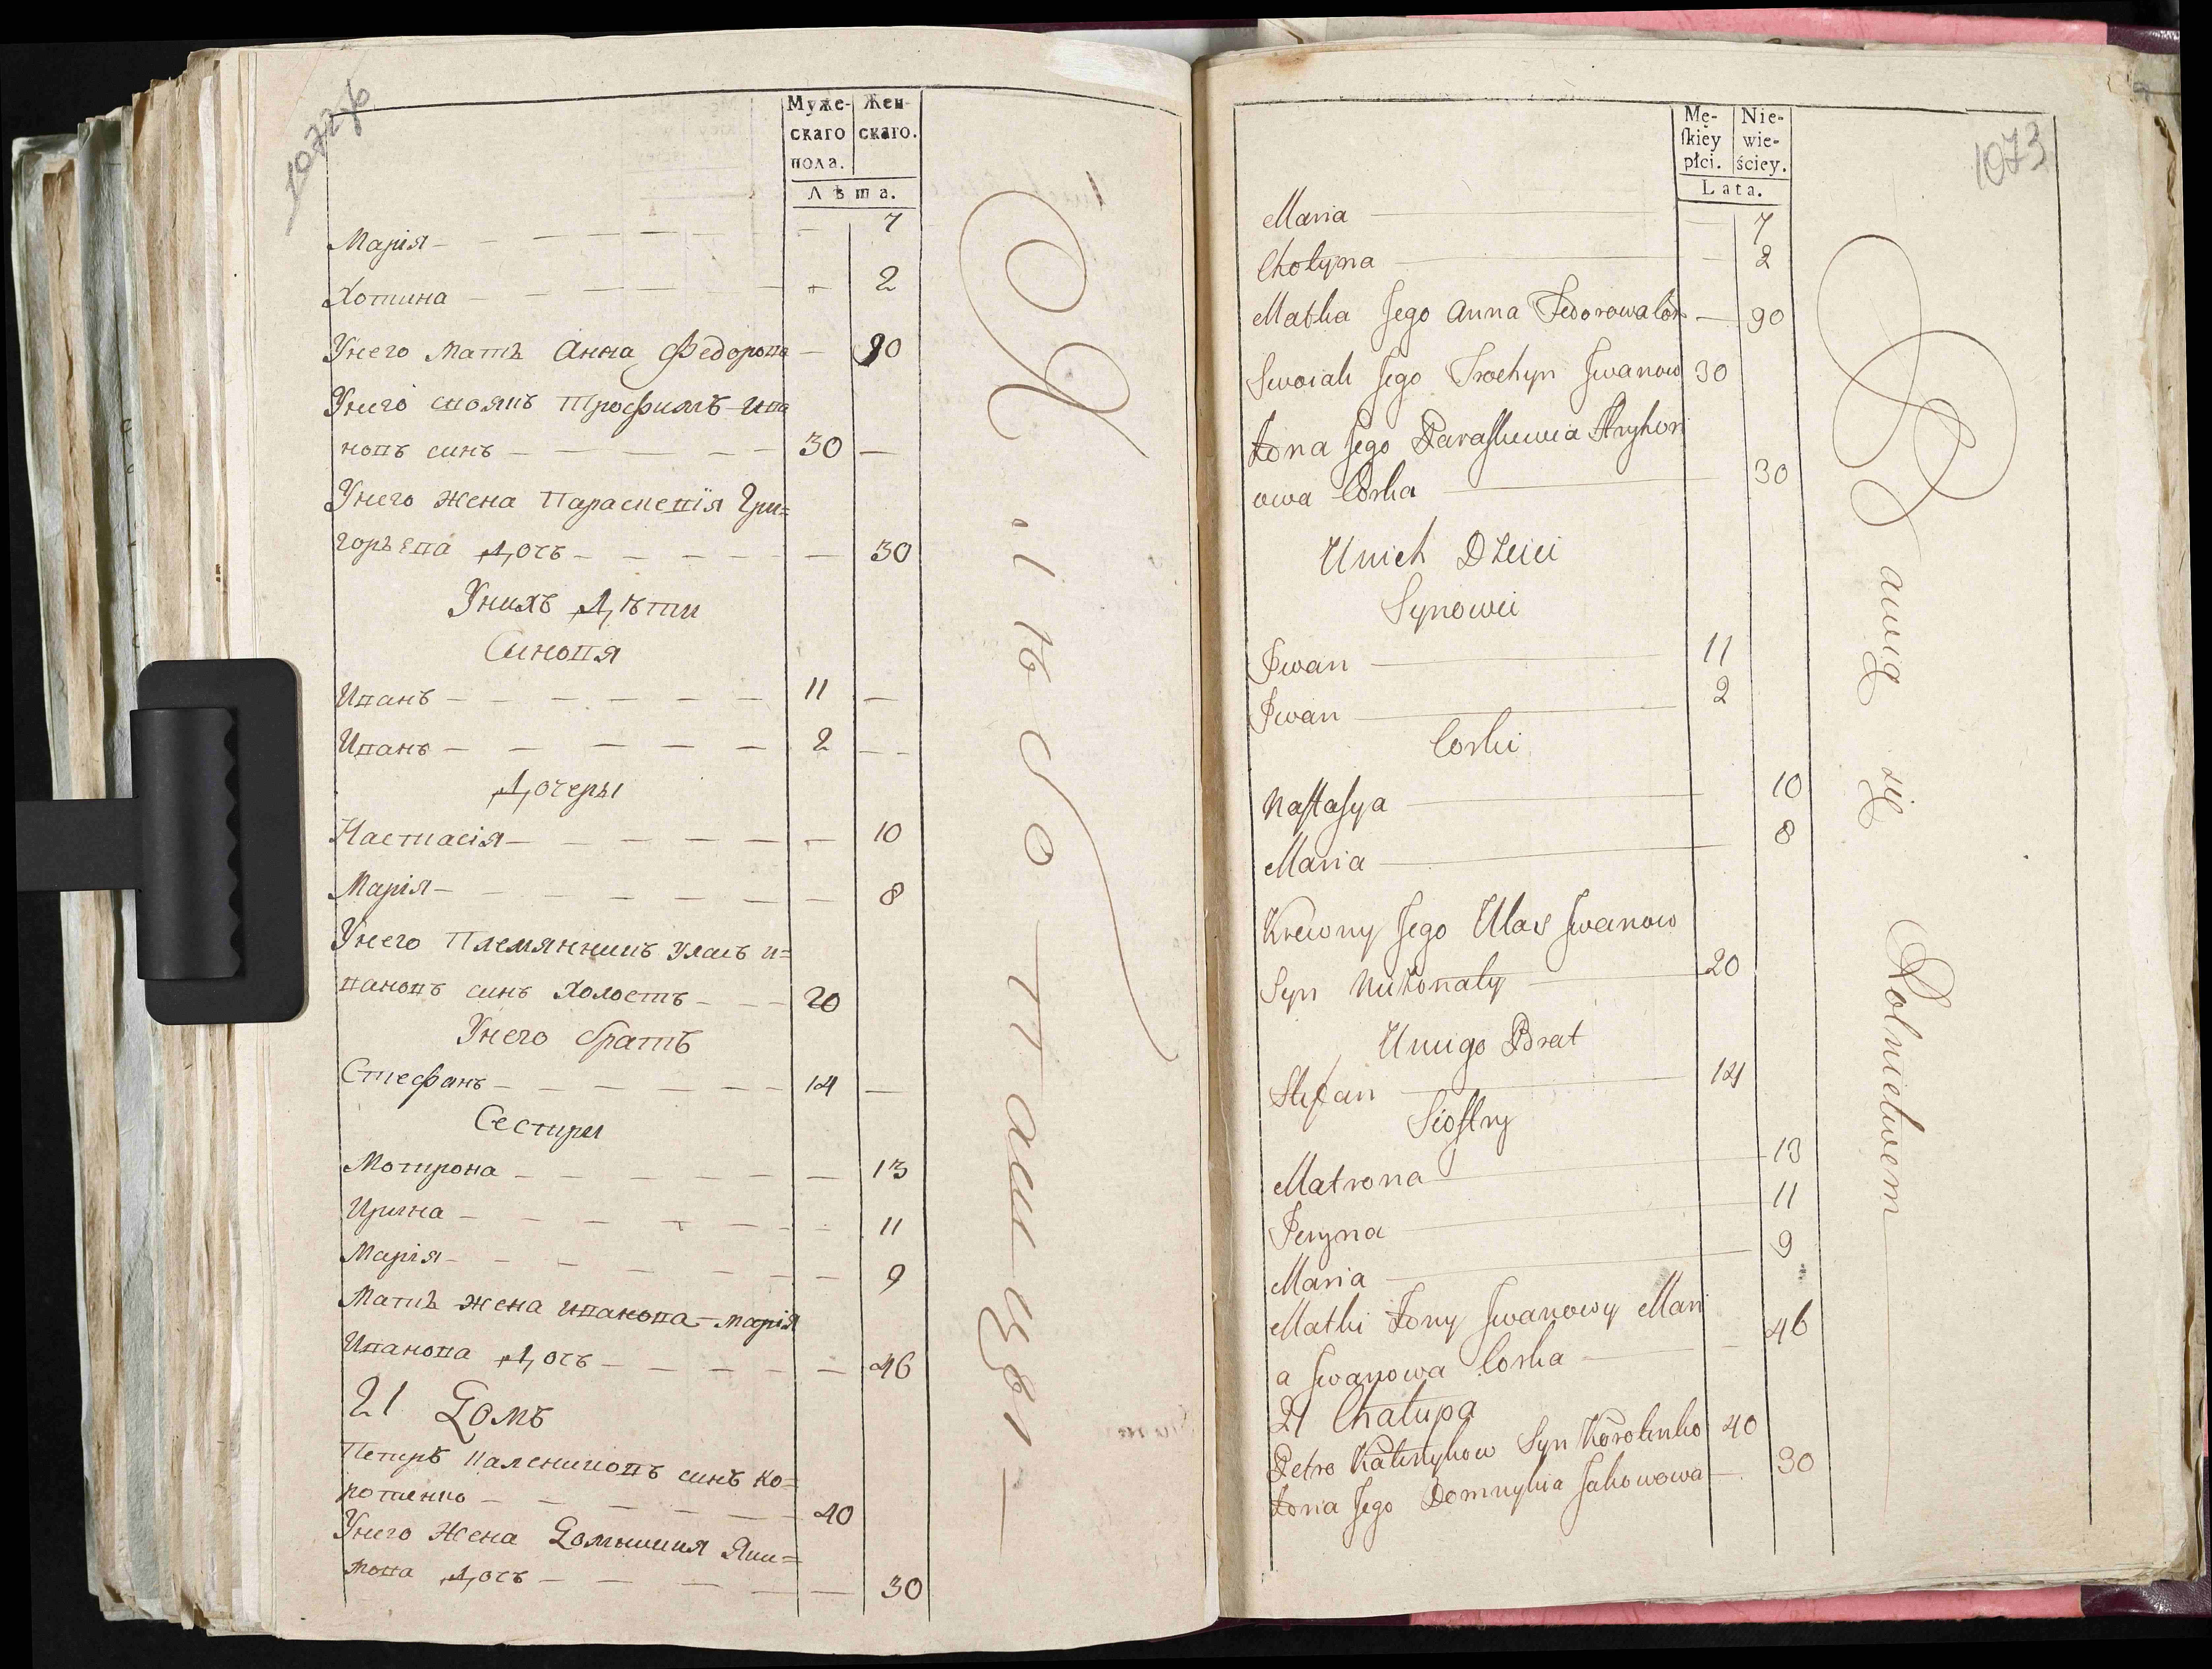 1072об
Муже-
скаго
пола.
Жен-
скаго.
Лѣта.
Марія — 7
Хотина — 2
Унего мать Анна Федорова — 90
Унего своякъ Трофимъ Ива
новъ синъ — 30 —
Унего жена Параскевія Гри=
горьева Дочь — 30
Унихъ Дѣти
Синовя
Иванъ — 11 —
Иванъ — 2 —
Дочеры
Настасія — 10
Марія — 8
Унего Племянникъ Уласъ И=
вановъ синъ холостъ — 20
Унего братъ
Стефанъ — 14 —
Сестры
Мотрона — 13
Ирина — 11
Марія — 9
Мать жена Иванова Марія
Иванова Дочь — 46
21 Домъ
Петръ Калениковъ синъ Ко=
ротенко — 40
Унего Жена Домникия Яки=
мова Дочь — 30
Mę-
ſkiey
płci.
Nie-
wie-
ściey.
Lata.
1073
Maria — 7
Chotyna — 2
Matka Jego Anna Fedorowa Cór — 90
Swoiak Jego Trochym Jwanow 30
Żona Jego Paraſkiewia Hryhori
owa Corka — 30
Unich Dzieci
Synowie
Jwan — 11
Jwan — 2
Corki
Naſtaſya — 10
Maria — 8
Krewny Jego Ułas Jwanow
Syn Nieżonaty — 20
Uniego Brat
Stefan — 14
Sioſtry
Matrona — 13
Jeryna — 11
Maria — 9
Matki Żony Jwanowy Mari
a Jwanowa Corka — 46
21 Chałupa
Petro Kalenykow Syn Korotenko 40
Żona Jego Domnykia Jakowowa — 30
Bawią się Rolnictwem